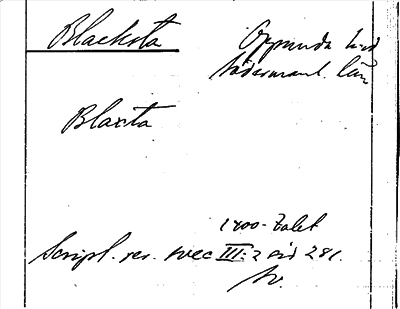 Blacksta Oppunda hrd
Södermanl. län
Blaxta
1400-talet
Script. rer. svec III:2 sid 281.